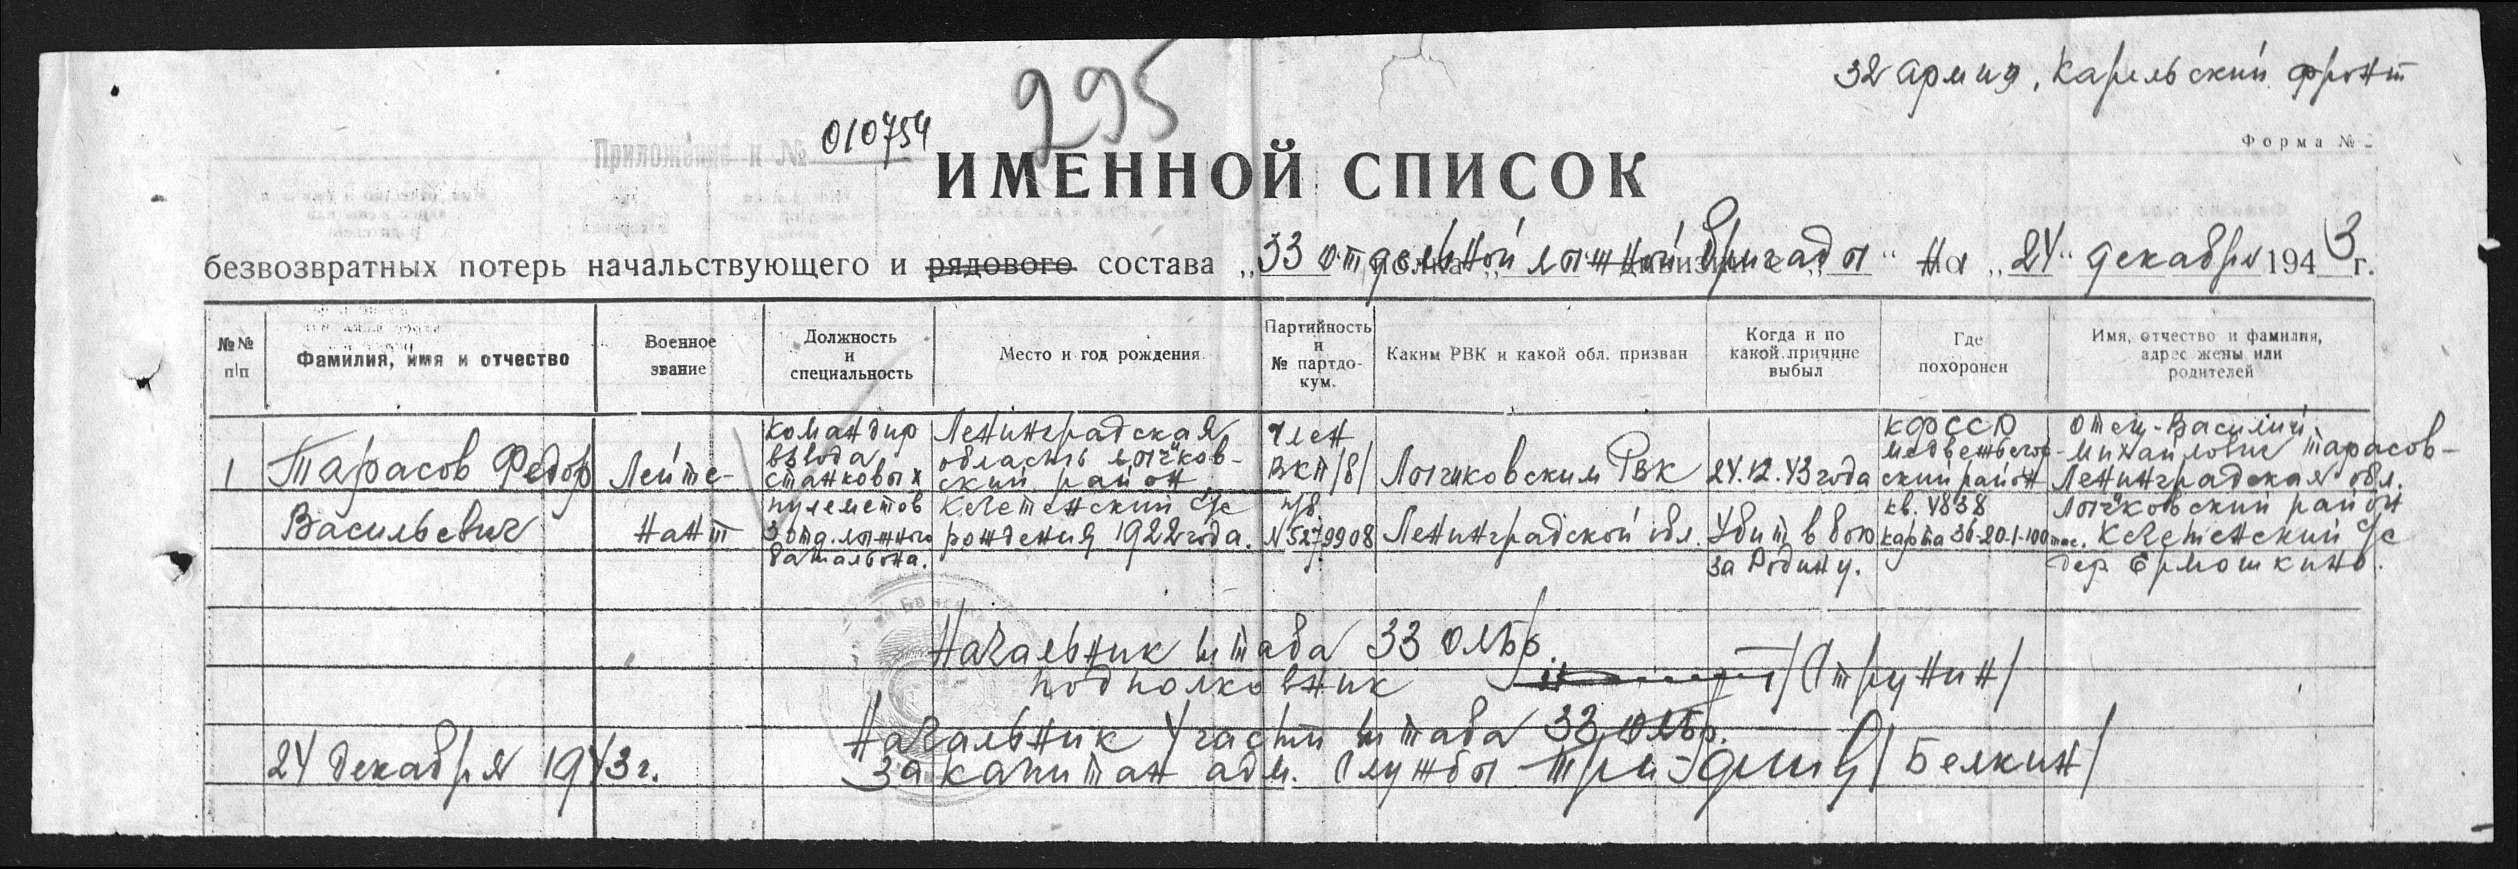 32 армия, Карельский фронт
295
Приложение к № 010754
Форма №
ИМЕННОЙ СПИСОК
безвозвратных потерь начальствующего и рядового состава „33 отдельной лыжной бригады“ на „24“ декабря 1943 г.
№№ п/п
Фамилия, имя и отчество
Военное звание
Должность и специальность
Место и год рождения
Партийность и № партдокум.
Каким РВК и какой обл. призван
Когда и по какой причине выбыл
Где похоронен
Имя, отчество и фамилия, адрес жены или родителей
1
Тарасов Федор
Васильевич
Лейте-
нант
командир
взвода
станковых
пулеметов
3 отд. лыжного
батальона.
Ленинградская
область Лычков-
ский район
с/с
рождения 1922 года.
Член
ВКП/б/
№5279908
Лычковским РВК
Ленинградской обл.
24.12.43 года
Убит в бою
за Родину.
КФССР
Медвежьегор-
ский район
кв. 4838
карта 36-20-1-100 тыс.
отец-Василий
Михайлович Тарасов-
Ленинградская обл.
Лычковский район
с/с
дер Ермошкино.
Начальник штаба 33 ОЛБр.
подполковник /Струнин/
Начальник 4 части штаба 33 ОЛБр.
24 декабря 1943 г.
за капитан адм. службы /Белкин/